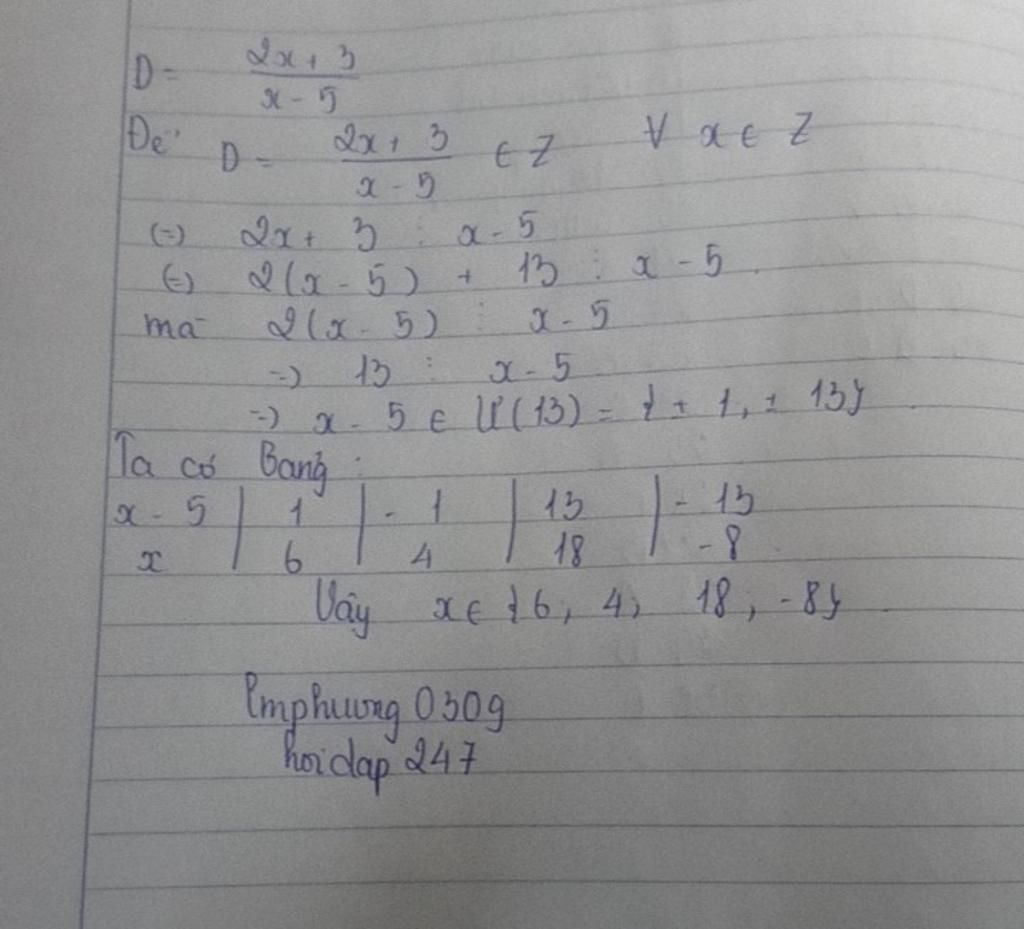 D = \frac{2x+3}{x-5}
Để D = \frac{2x+3}{x-5} ∈ Z ∀ x ∈ Z
(=) 2x + 3 ⋮ x - 5
(=) 2(x - 5) + 13 ⋮ x - 5
mà 2(x - 5) ⋮ x - 5
=) 13 ⋮ x - 5
=) x - 5 ∈ Ư(13) = {± 1, ± 13}
Ta có Bảng :
x - 5 | 1 | - 1 | 13 | - 13
x | 6 | 4 | 18 | - 8
Vậy x ∈ {6, 4, 18, -8}
lmphuong0309
hoidap247